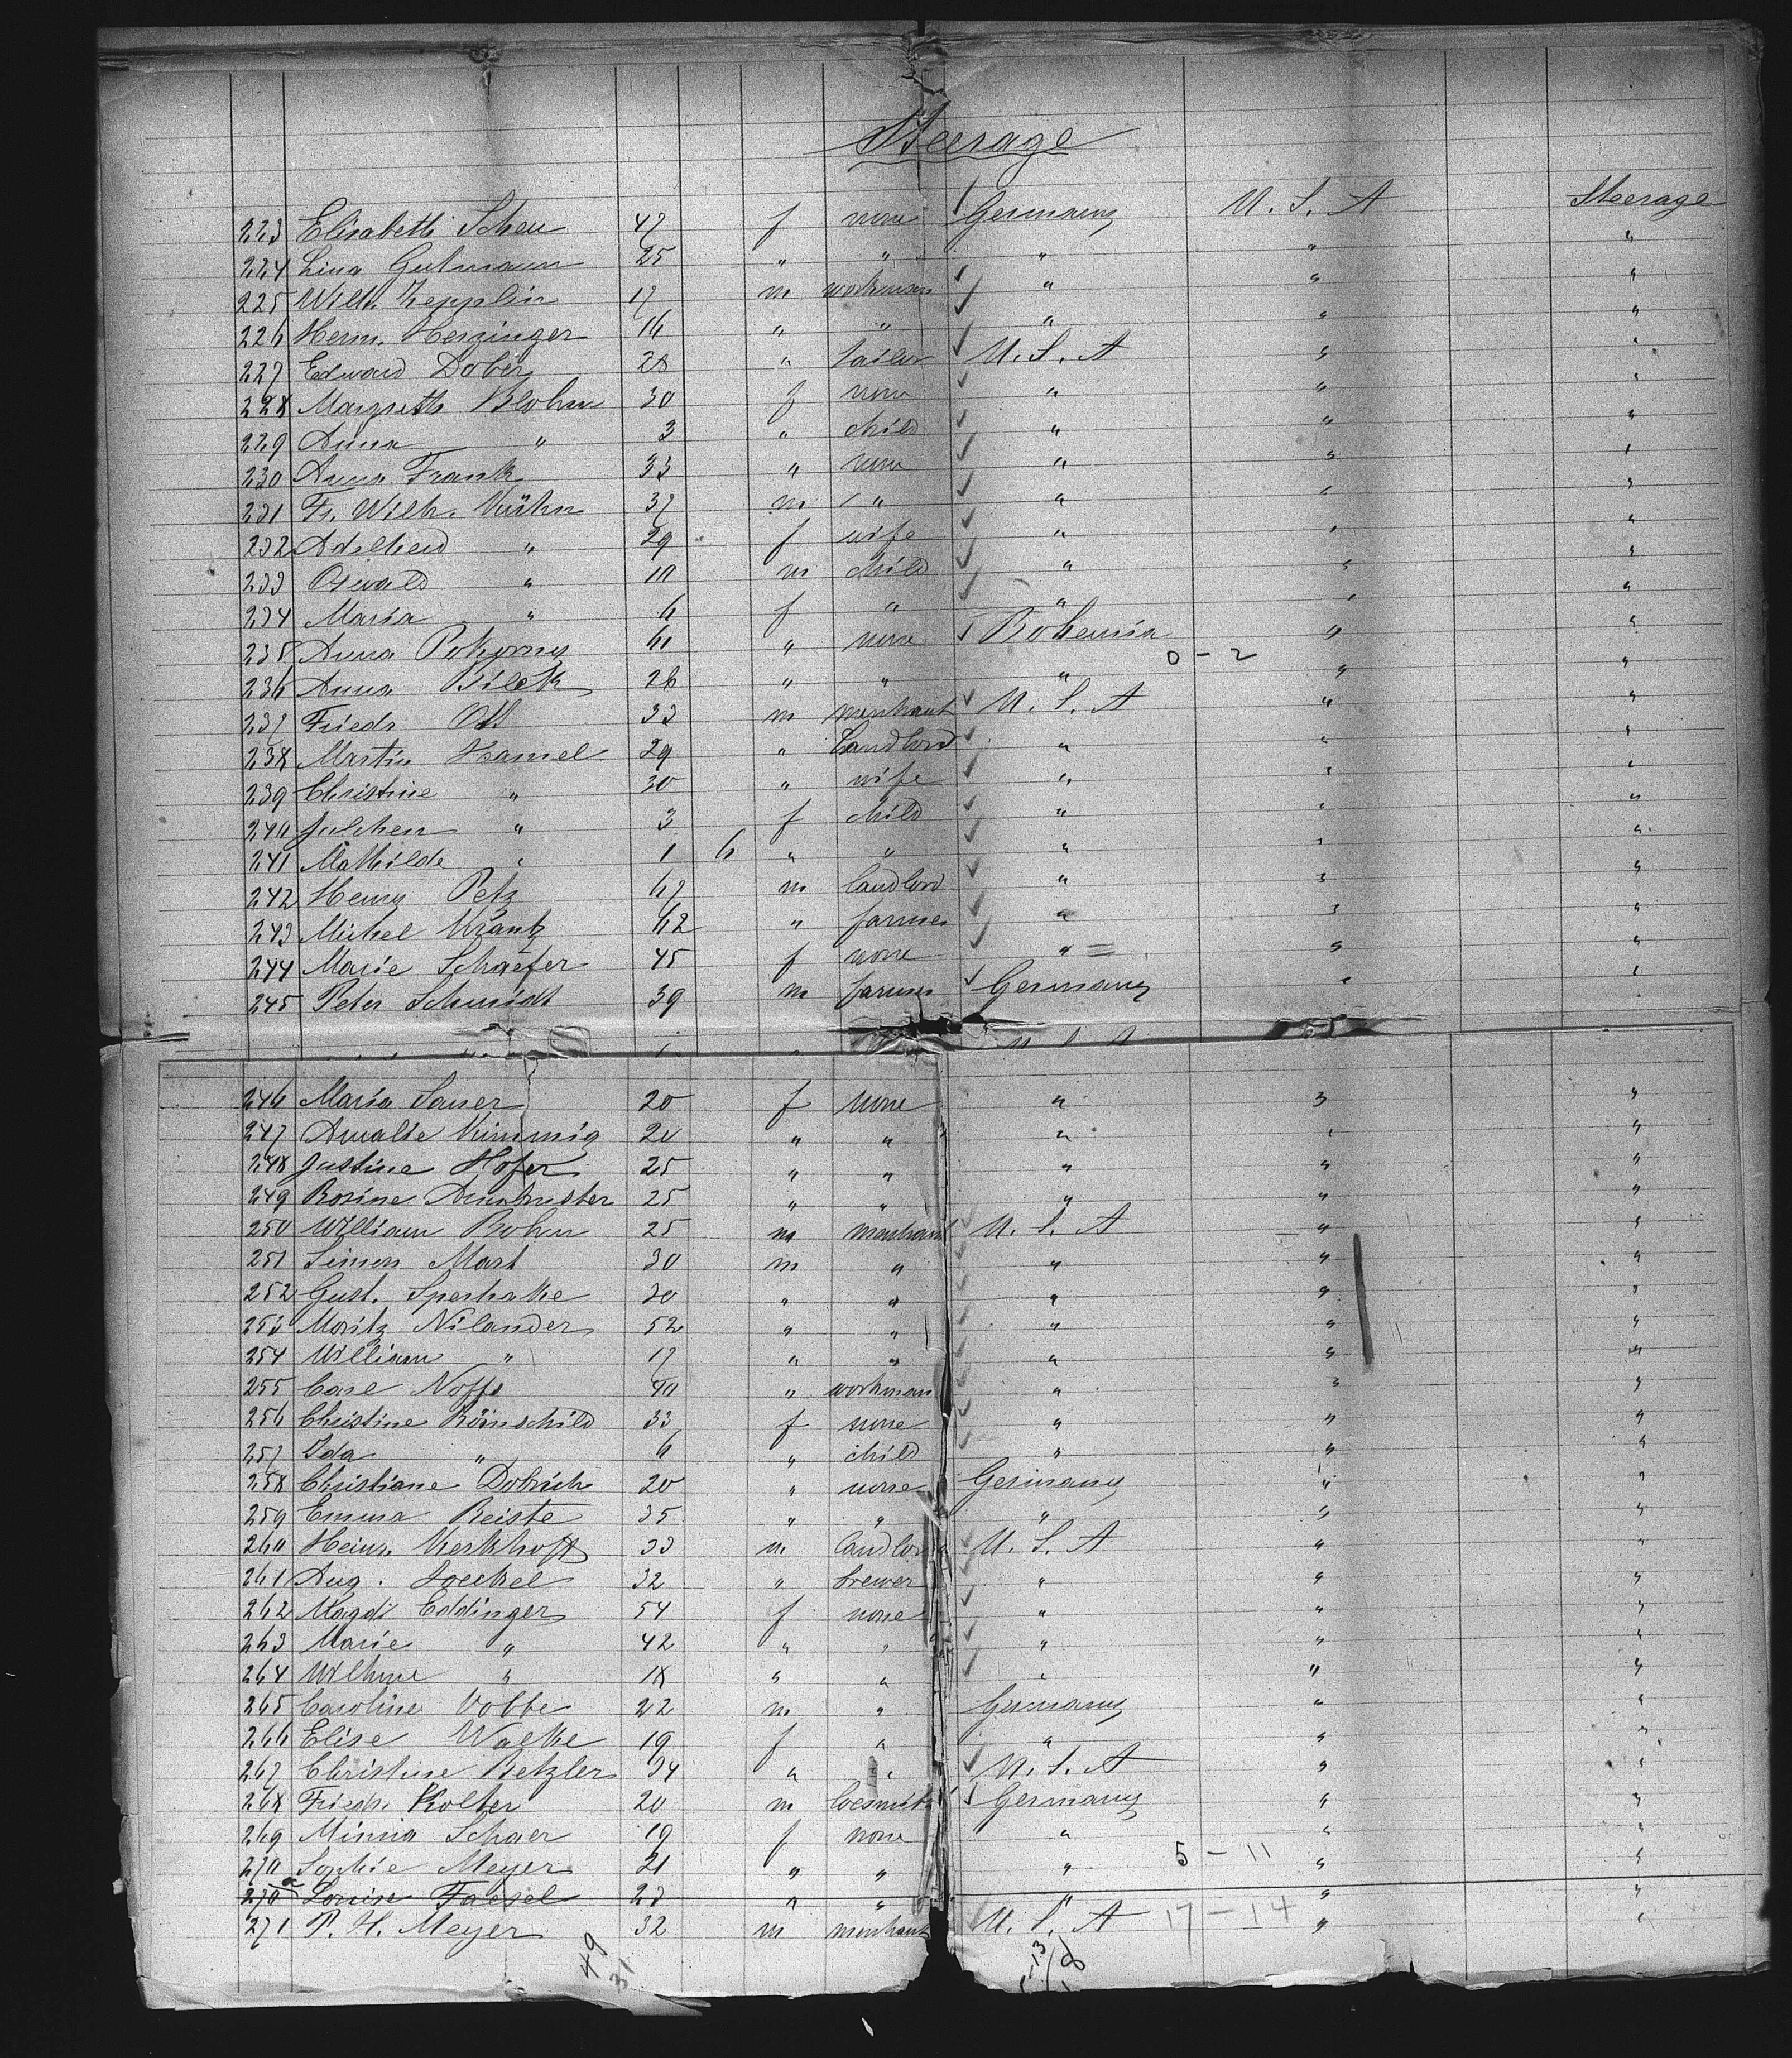 Steerage
223 Elisabeth Scheu 47 f none Germany U. S. A Steerage
224 Lina Gutmann 25 " " " " "
225 Wilh. Zepplin 17 m workman " " "
226 Herm. Herzinger 16 " " " " "
227 Edward Dober 28 " tailor U. S. A " "
228 Margreth Blohm 30 f none " " "
229 Anna " 3 " child " " "
230 Anna Frank 33 " none " " "
231 Fr. Wilh. Kühn 37 m " " " "
232 Adelheid " 29 f wife " " "
233 Oswald " 10 m child " " "
234 Maria " 6 f " " " "
235 Anna Pokorny 61 " none Bohemia " "
0 - 2
236 Anna Bilek 26 " " " " "
237 Friedr. Ott 33 m merchant U. S. A " "
238 Martin Hamel 29 " Landlord " " "
239 Christine " 30 " wife " " "
240 Julchen " 3 f child " " "
241 Mathilde " 1 6 " " " " "
242 Henry Petz 67 m landlord " " "
243 Michel Krantz 62 " farmer " " "
244 Marie Schaefer 45 f none " " "
245 Peter Schmidt 39 m farmer Germany " "
246 Maria Sauer 20 f none " " "
247 Amalie Kimmig 20 " " " " "
248 Justine Hofer 25 " " " " "
249 Rosine 25 " " " " "
250 William Bohn 25 m merchant U. S. A " "
251 Simon Mart 30 m " " " "
252 Gust. Sperhake 20 " " " " "
253 Moritz Nilander 52 " " " " "
254 William " 17 " " " " "
255 Carl Noffs 40 " workman " " "
256 Christine 33 f none " " "
257 Ida " 6 " child " " "
258 Christiane Dobrich 20 " none Germany " "
259 Emma Reiste 35 " " " " "
260 Heinr. Kerkhoff 33 m Landlord U. S. A " "
261 Aug. 32 " brewer " " "
262 Magd. Eddinger 54 f none " " "
263 Marie " 42 " " " " "
264 Wilhme " 18 " " " " "
265 Caroline Vobbe 22 m " Germany " "
266 Elise Walke 19 f " " " "
267 Christine Betzler 34 " " U. S. A " "
268 Friedr. Kolter 20 m Germany " "
269 Minnia Schaer 19 f none " " "
270 Sophie Meyer 21 " " " 5 - 11 " "
270a Louise Faesel 23 " " " " "
271 P. H. Meyer 32 m merchant U. S. A 17 - 14 " "
49
31